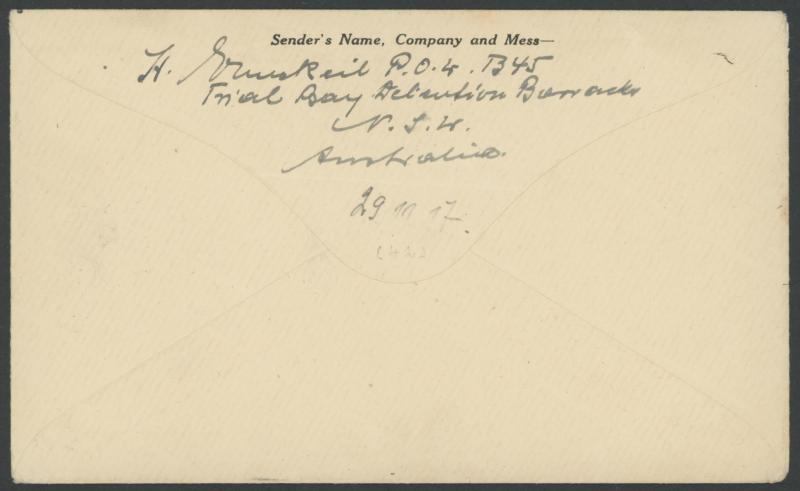 Sender's Name, Company and Mess—
H. P.O.W. B45
Trial Bay Detention Barracks
N.S.W.
Australia.
29 11 17.